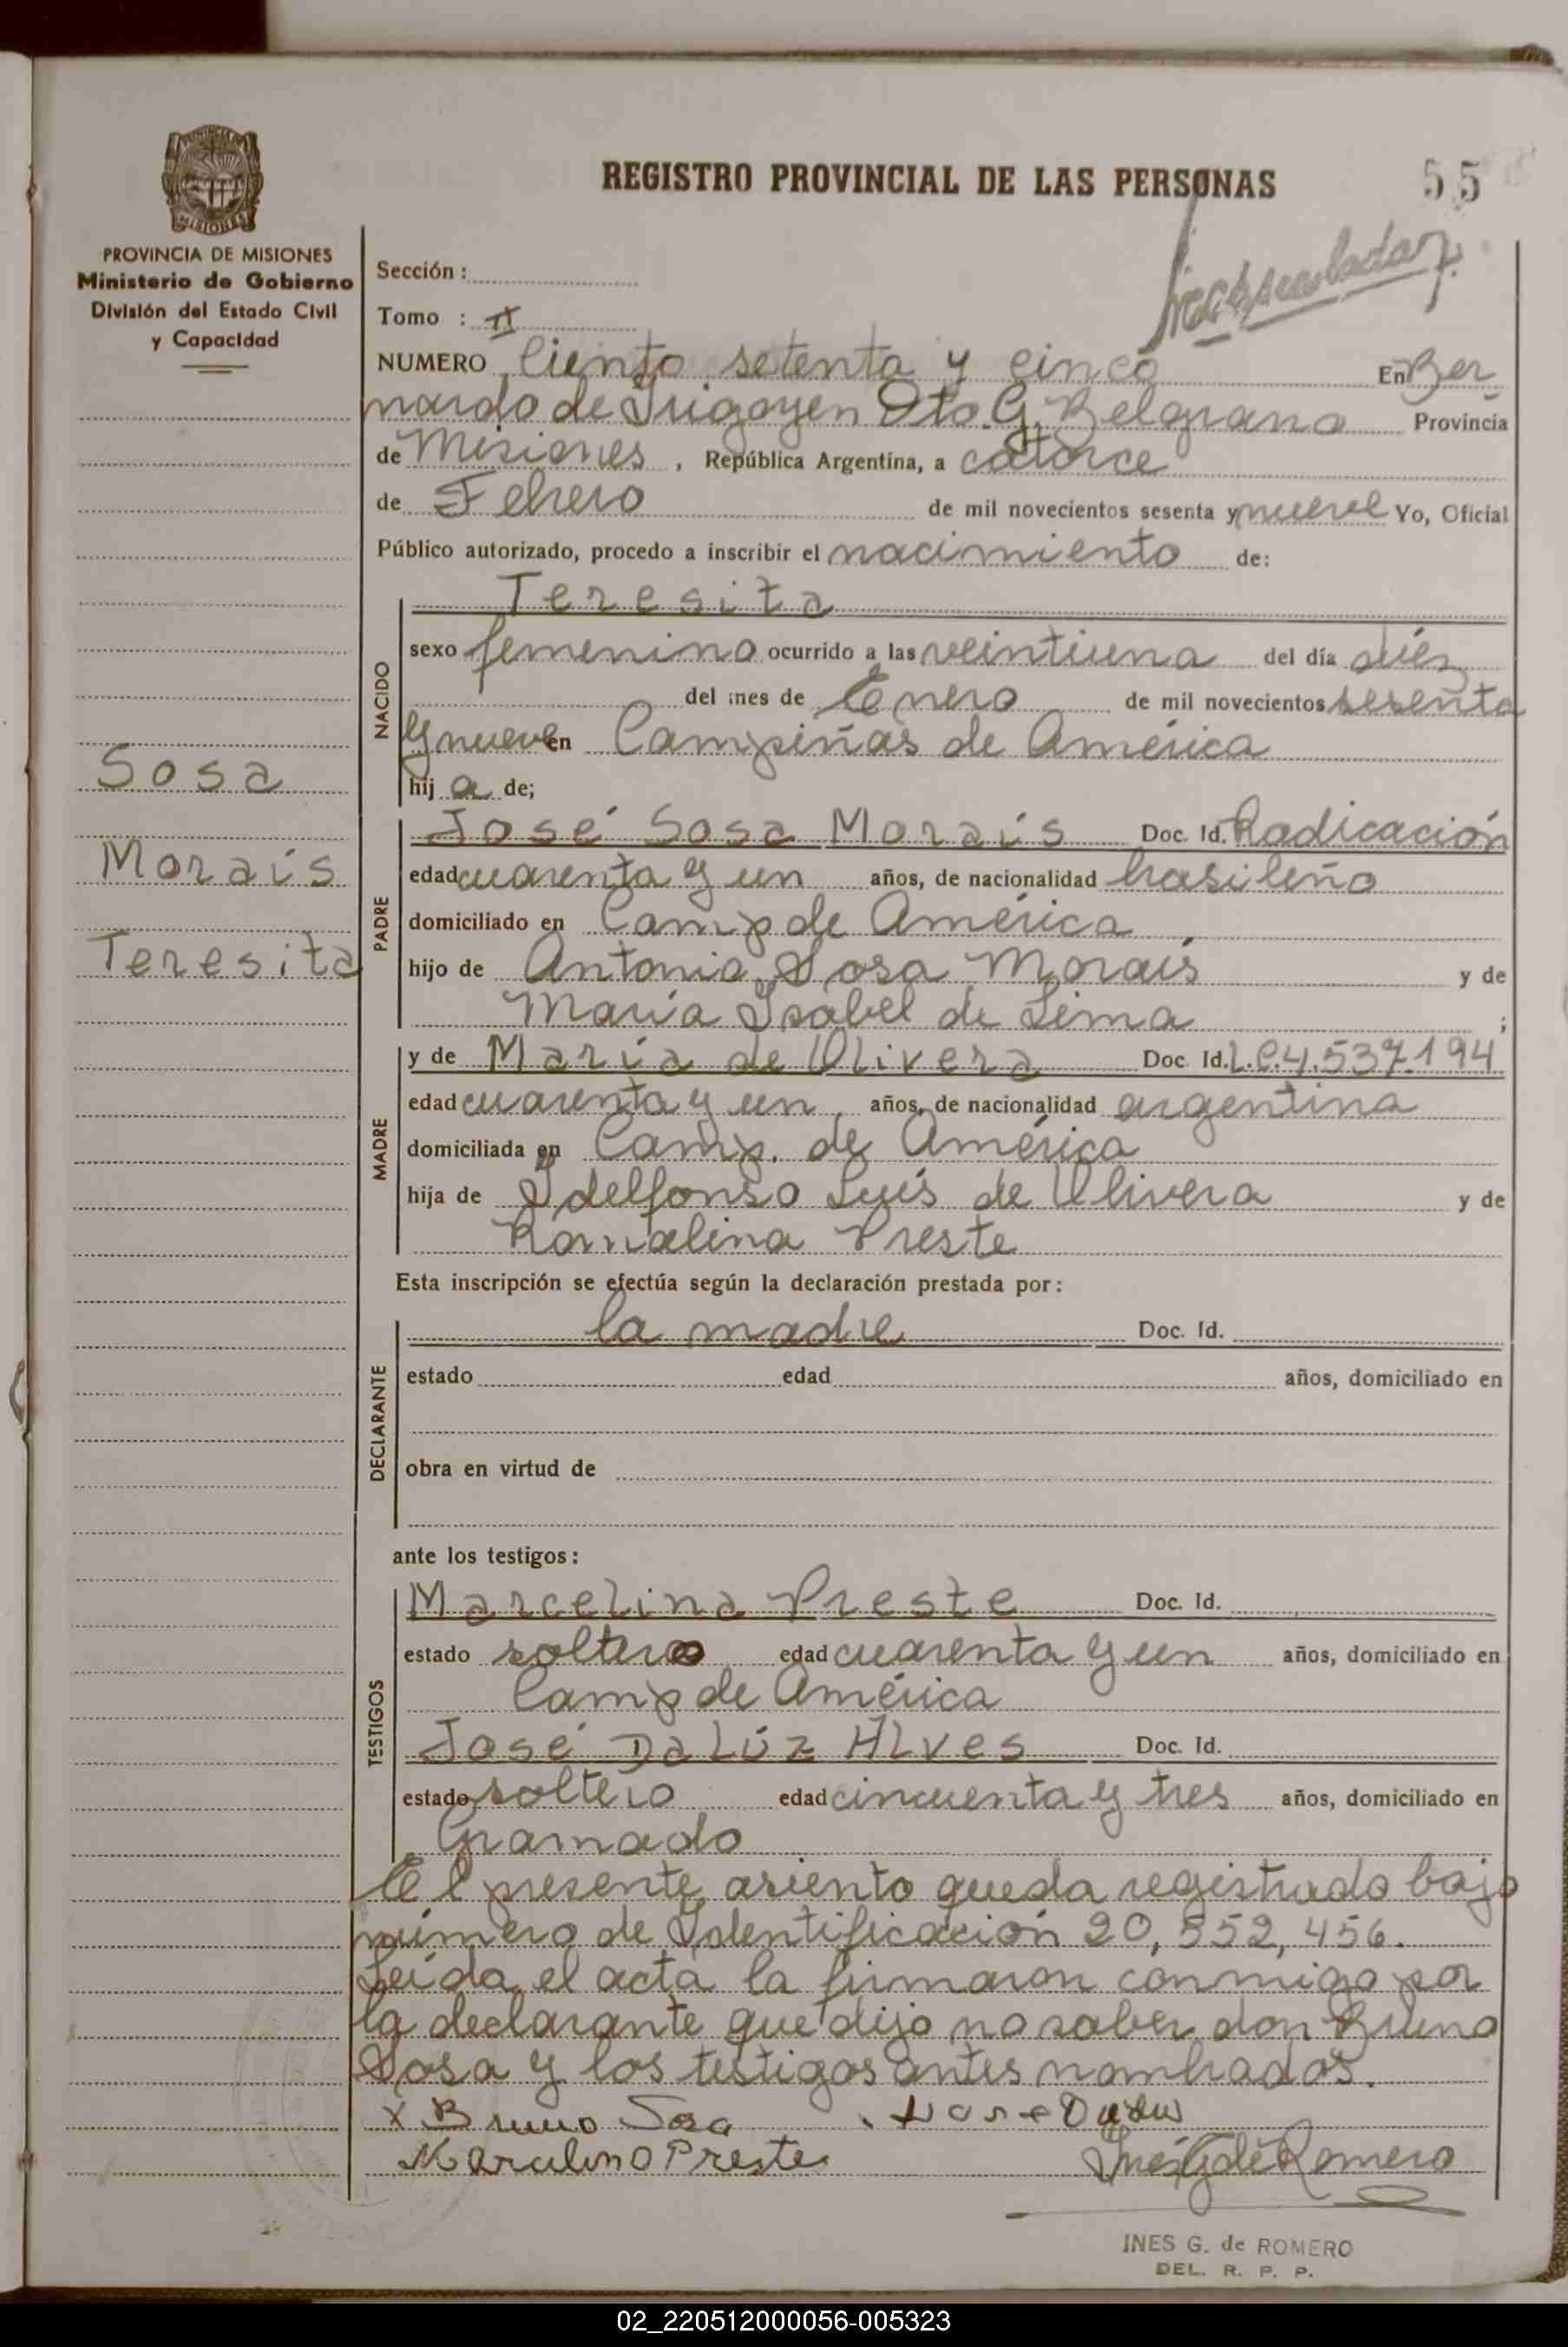 REGISTRO PROVINCIAL DE LAS PERSONAS
55
PROVINCIA DE MISIONES
Ministerio de Gobierno
División del Estado Civil
y Capacidad
Sección :
Tomo : II
NUMERO Ciento setenta y cinco En Ber
nardo de Irigoyen Dto. G. Belgrano Provincia
de Misiones , República Argentina, a catorce
de Febrero de mil novecientos sesenta y nueve Yo, Oficial
Público autorizado, procedo a inscribir el nacimiento de:
NACIDO
Teresita
sexo femenino ocurrido a las veintiuna del día diéz
del mes de Enero de mil novecientos sesenta
y nueve en Campiñas de América
hij a de;
Sosa
Moraís
Teresita
PADRE
José Sosa Moraís Doc. Id. Radicación
edad cuarenta y un años, de nacionalidad brasileño
domiciliado en Camp de América
hijo de Antonio Sosa Moraís y de
María Isabel de Lima ;
MADRE
y de María de Olivera Doc. Id. L.C.4.537.194
edad cuarenta y un años, de nacionalidad argentina
domiciliada en Camp. de América
hija de Idelfonso Luís de Olivera y de
Romalina Preste
Esta inscripción se efectúa según la declaración prestada por:
DECLARANTE
la madre Doc. Id.
estado edad años, domiciliado en
obra en virtud de
ante los testigos:
TESTIGOS
Marcelino Preste Doc. Id.
estado soltero edad cuarenta y un años, domiciliado en
Camp de América
José Da Lúz Alves Doc. Id.
estado soltero edad cincuenta y tres años, domiciliado en
Gramado
El presente asiento queda registrado bajo
número de Identificación 20,552,456.
Leída el acta la firmaron conmigo por
la declarante que dijo no saber don Bruno
Sosa y los testigos antes nombrados.
x Bruno Sosa
Marcelino Preste Inés G de Romero
INES G. de ROMERO
DEL. R. P. P.
02_220512000056-005323